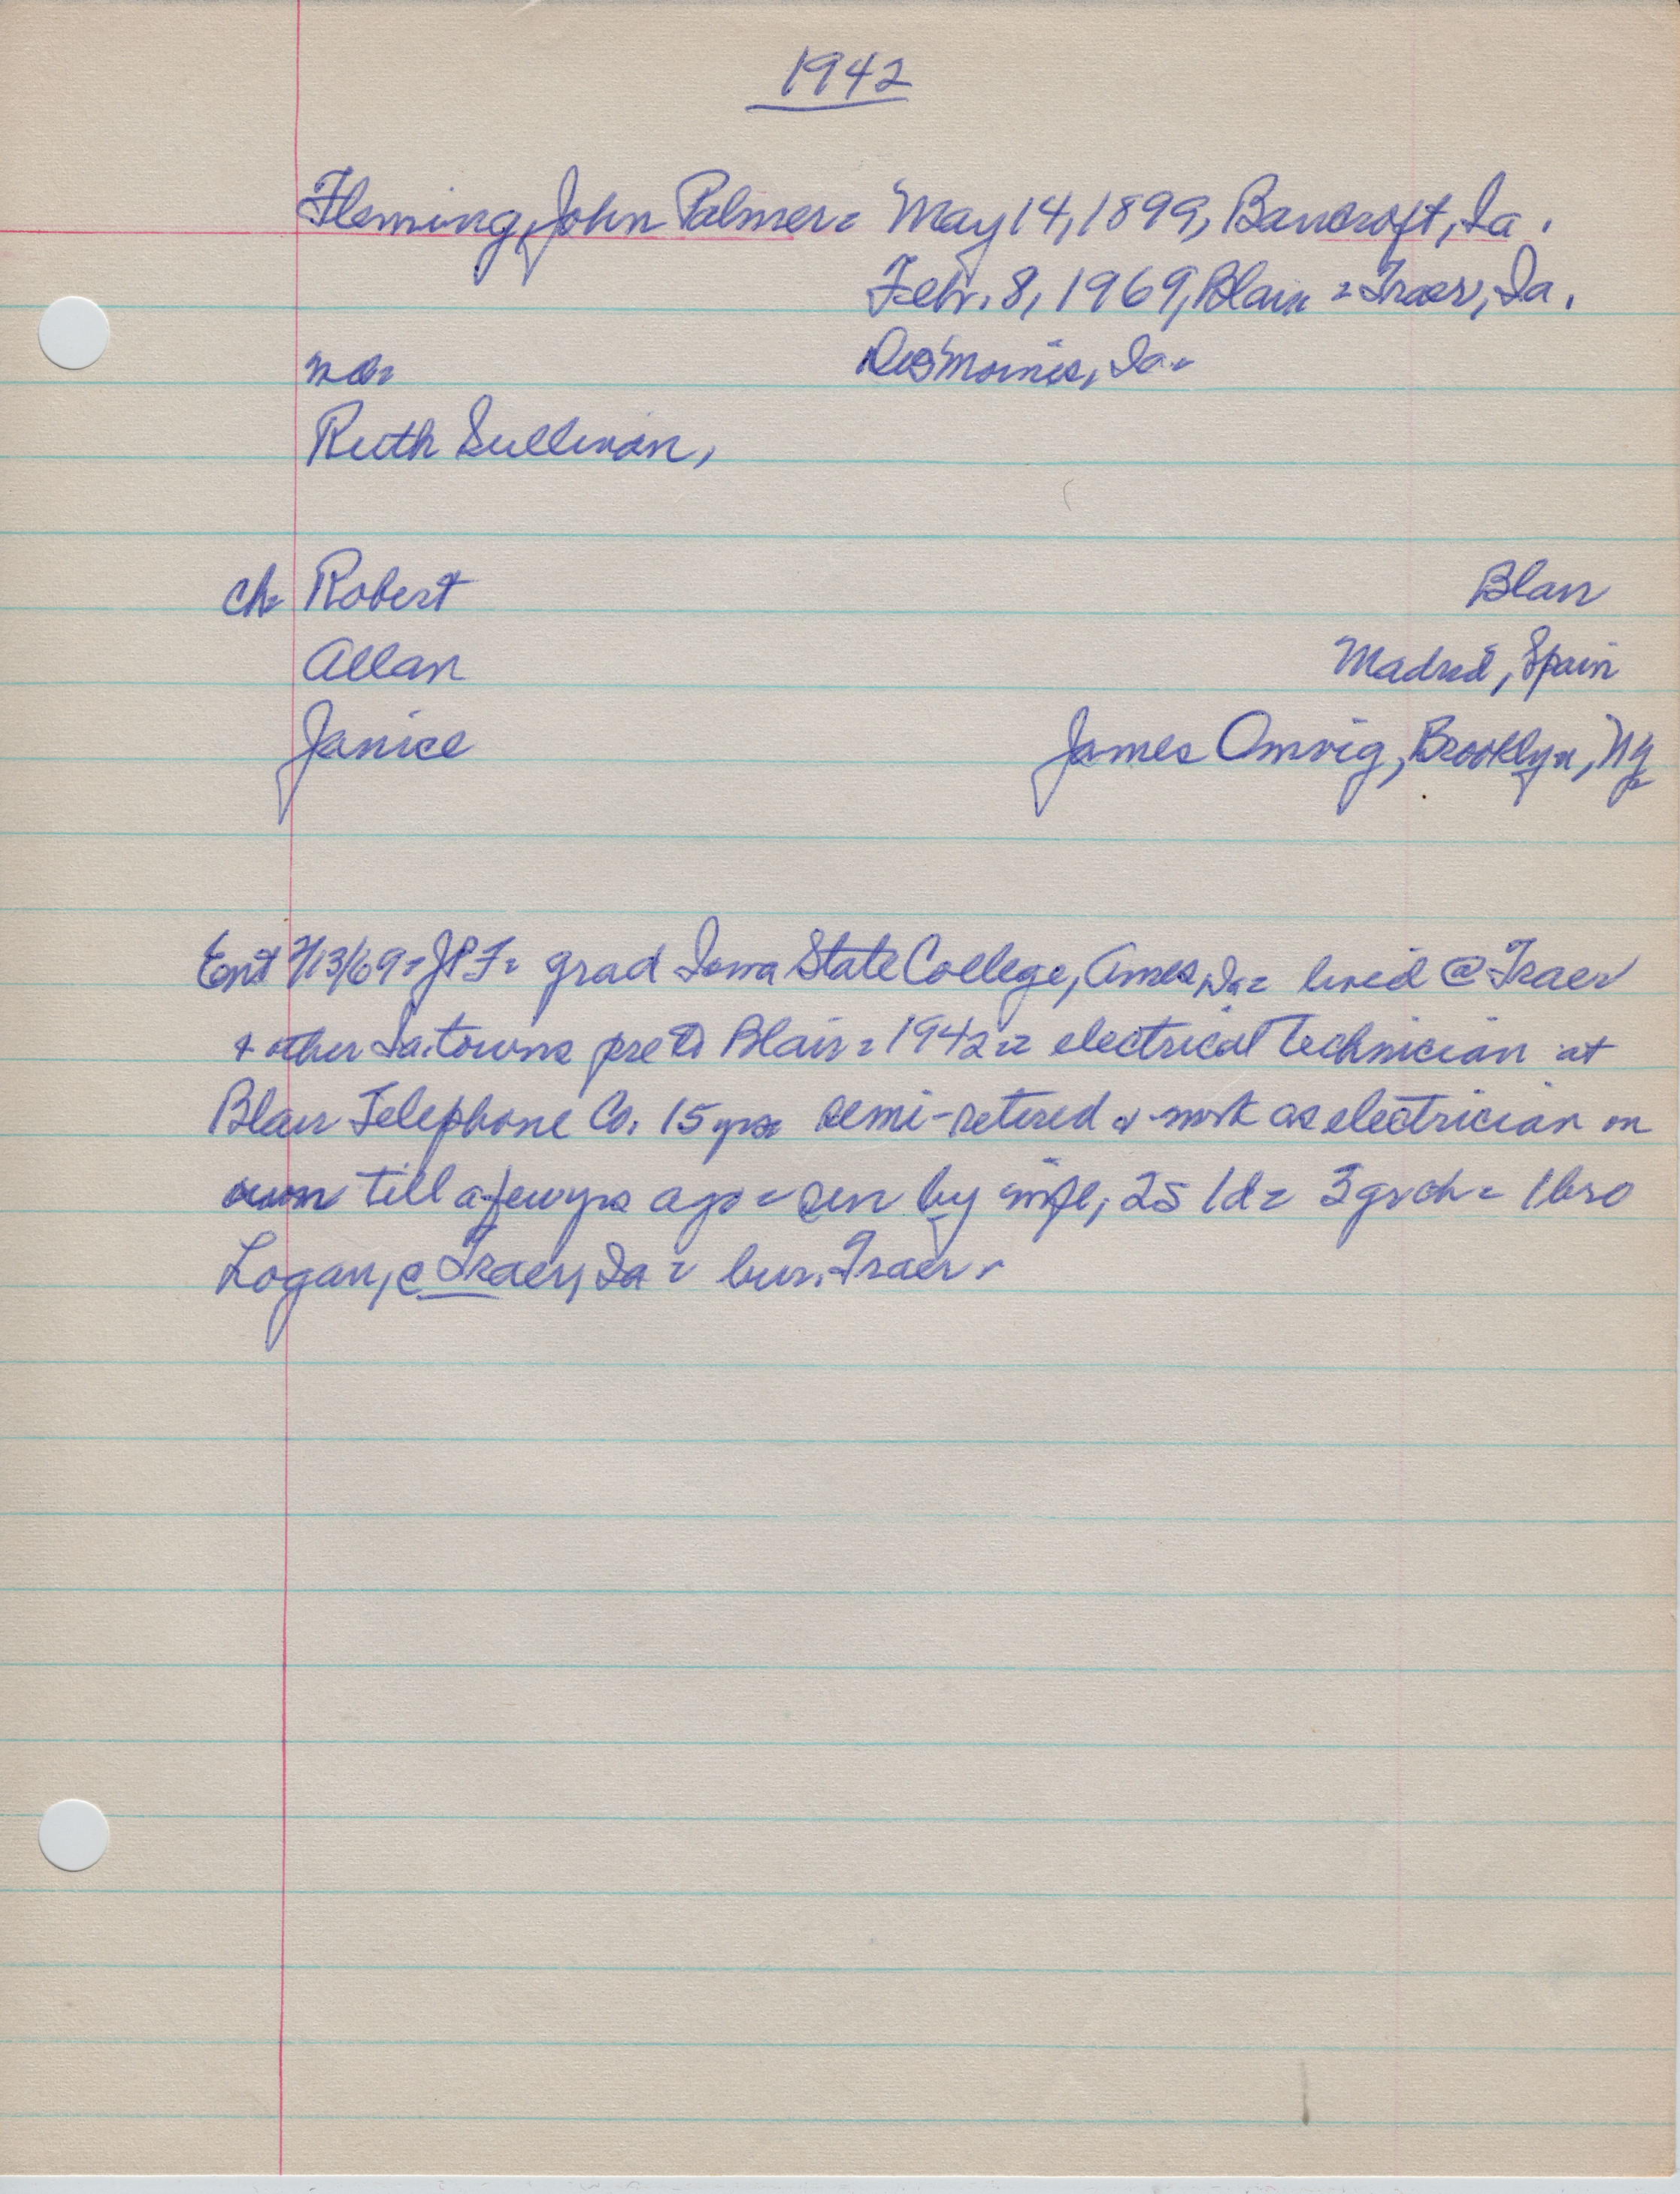 1942
Fleming, John Palmer = May 14, 1899, Bancroft, Ia.
Febr. 8, 1969, Blair = Traer, Ia.
md = Des Moines, Ia =
Ruth Sullivan,
ch = Robert Blair
Allan Madrid, Spain
Janice James Omvig, Brooklyn, NY
Ent 2/13/69 = JPF = grad Iowa State College, Ames, Ia = lived @ Traer
& other Ia. towns pre to Blair = 1942 = electrical technician at
Blair Telephone Co. 15 yrs = semi-retired & work as electrician on
own till a few yrs ago = sur by wife, 2s 1d = 3 grch = 1 bro
Logan, @ Traer, Ia = bur. Traer =